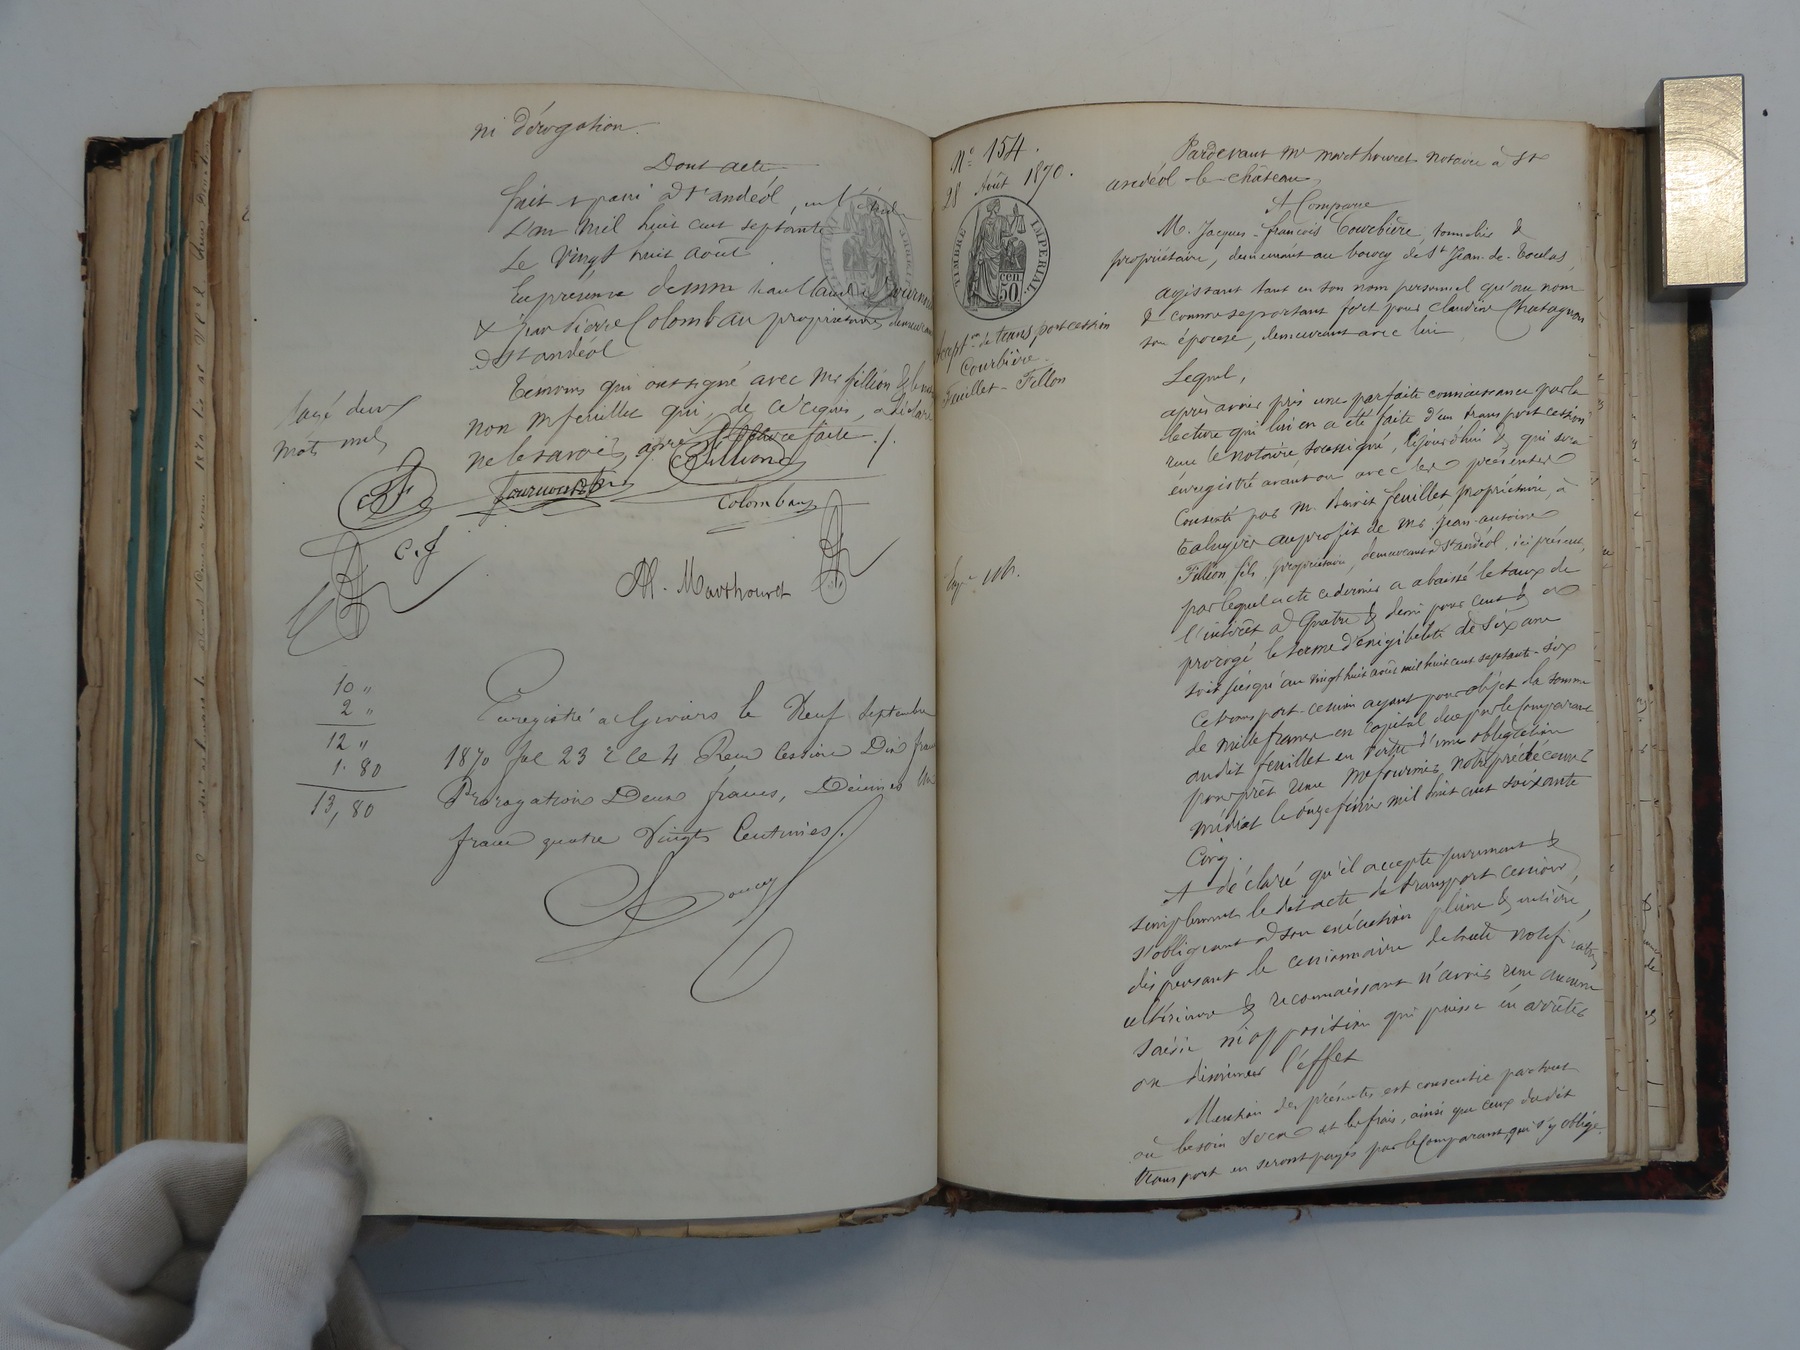 ni dérogation.
Dont acte
fait & passé à St andéol, en l'étude
L'an mil huit cent septante
Le Vingt huit août
En présence de mm Jean Claude Fournand
& Jean Pierre Colomban propriétaires demeurant
à St andéol
Témoins qui ont signé avec Mr fillion & le notaire
non M feuillet qui, de ce requis, a déclaré
ne le savoir, après lecture faite ./.
Rayé deux
mots nuls
C.F
Fillion
Colomban
C. F
M. Marthouret
10 "
2 "
12 "
1. 80
13, 80
Enregistré à Givors le Neuf Septembre
1870 fol 23 r Ce 4 Reçu Cession Dix francs
Prorogation Deux francs, Décimes Un
franc quatre Vingts Centimes.
N° 154.
28 Août 1870.
TIMBRE IMPERIAL
50 cen
Accept.on de transport cession
Courbière
Feuillet - Fillon
Exp.
Pardevant Me Marthouret notaire à St
andéol-le-château
A Comparu
M. Jacques-françois Courbière, tonnelier &
propriétaire, demeurant au bourg de St Jean-de-Toulas,
agissant tant en son nom personnel qu'au nom
& comme se portant fort pour Claudine Chatagnon
son épouse, demeurant avec lui
Lequel,
après avoir pris une parfaite connaissance par la
lecture qui lui en a été faite d'un transport cession
reçu le notaire soussigné, cejourd'hui & qui sera
enregistré avant ou avec les présentes
Consenti par M. Benoit feuillet propriétaire, à
Taluyers au profit de Mr Jean-antoine
Fillion fils, propriétaire, demeurant à St andéol, ici présent,
par lequel acte ce dernier a abaissé le taux de
l'intérêt à Quatre & demi pour cent & a
prorogé le terme d'exigibilité de Six ans
soit jusqu'au vingt huit août mil huit cent septante-six
Ce transport-cession ayant pour objet la somme
de mille francs en capital due par le Comparant
audit feuillet en vertu d'une obligation
pour prêt reçue Me fournier, notre prédécesseur
médiat le onze février mil huit cent soixante
Cinq.
A déclaré qu'il accepte purement &
simplement le dit acte de transport cession,
s'obligeant à son exécution pleine & entière,
dispensant le cessionnaire de toute notification
ultérieure & reconnaissant n'avoir reçu aucune
saisie ni opposition qui puisse en arrêter
ou diminuer l'effet
Mention des présentes est consentie partout
où besoin sera et les frais, ainsi que ceux du dit
transport en seront payés par le Comparant qui s'y oblige